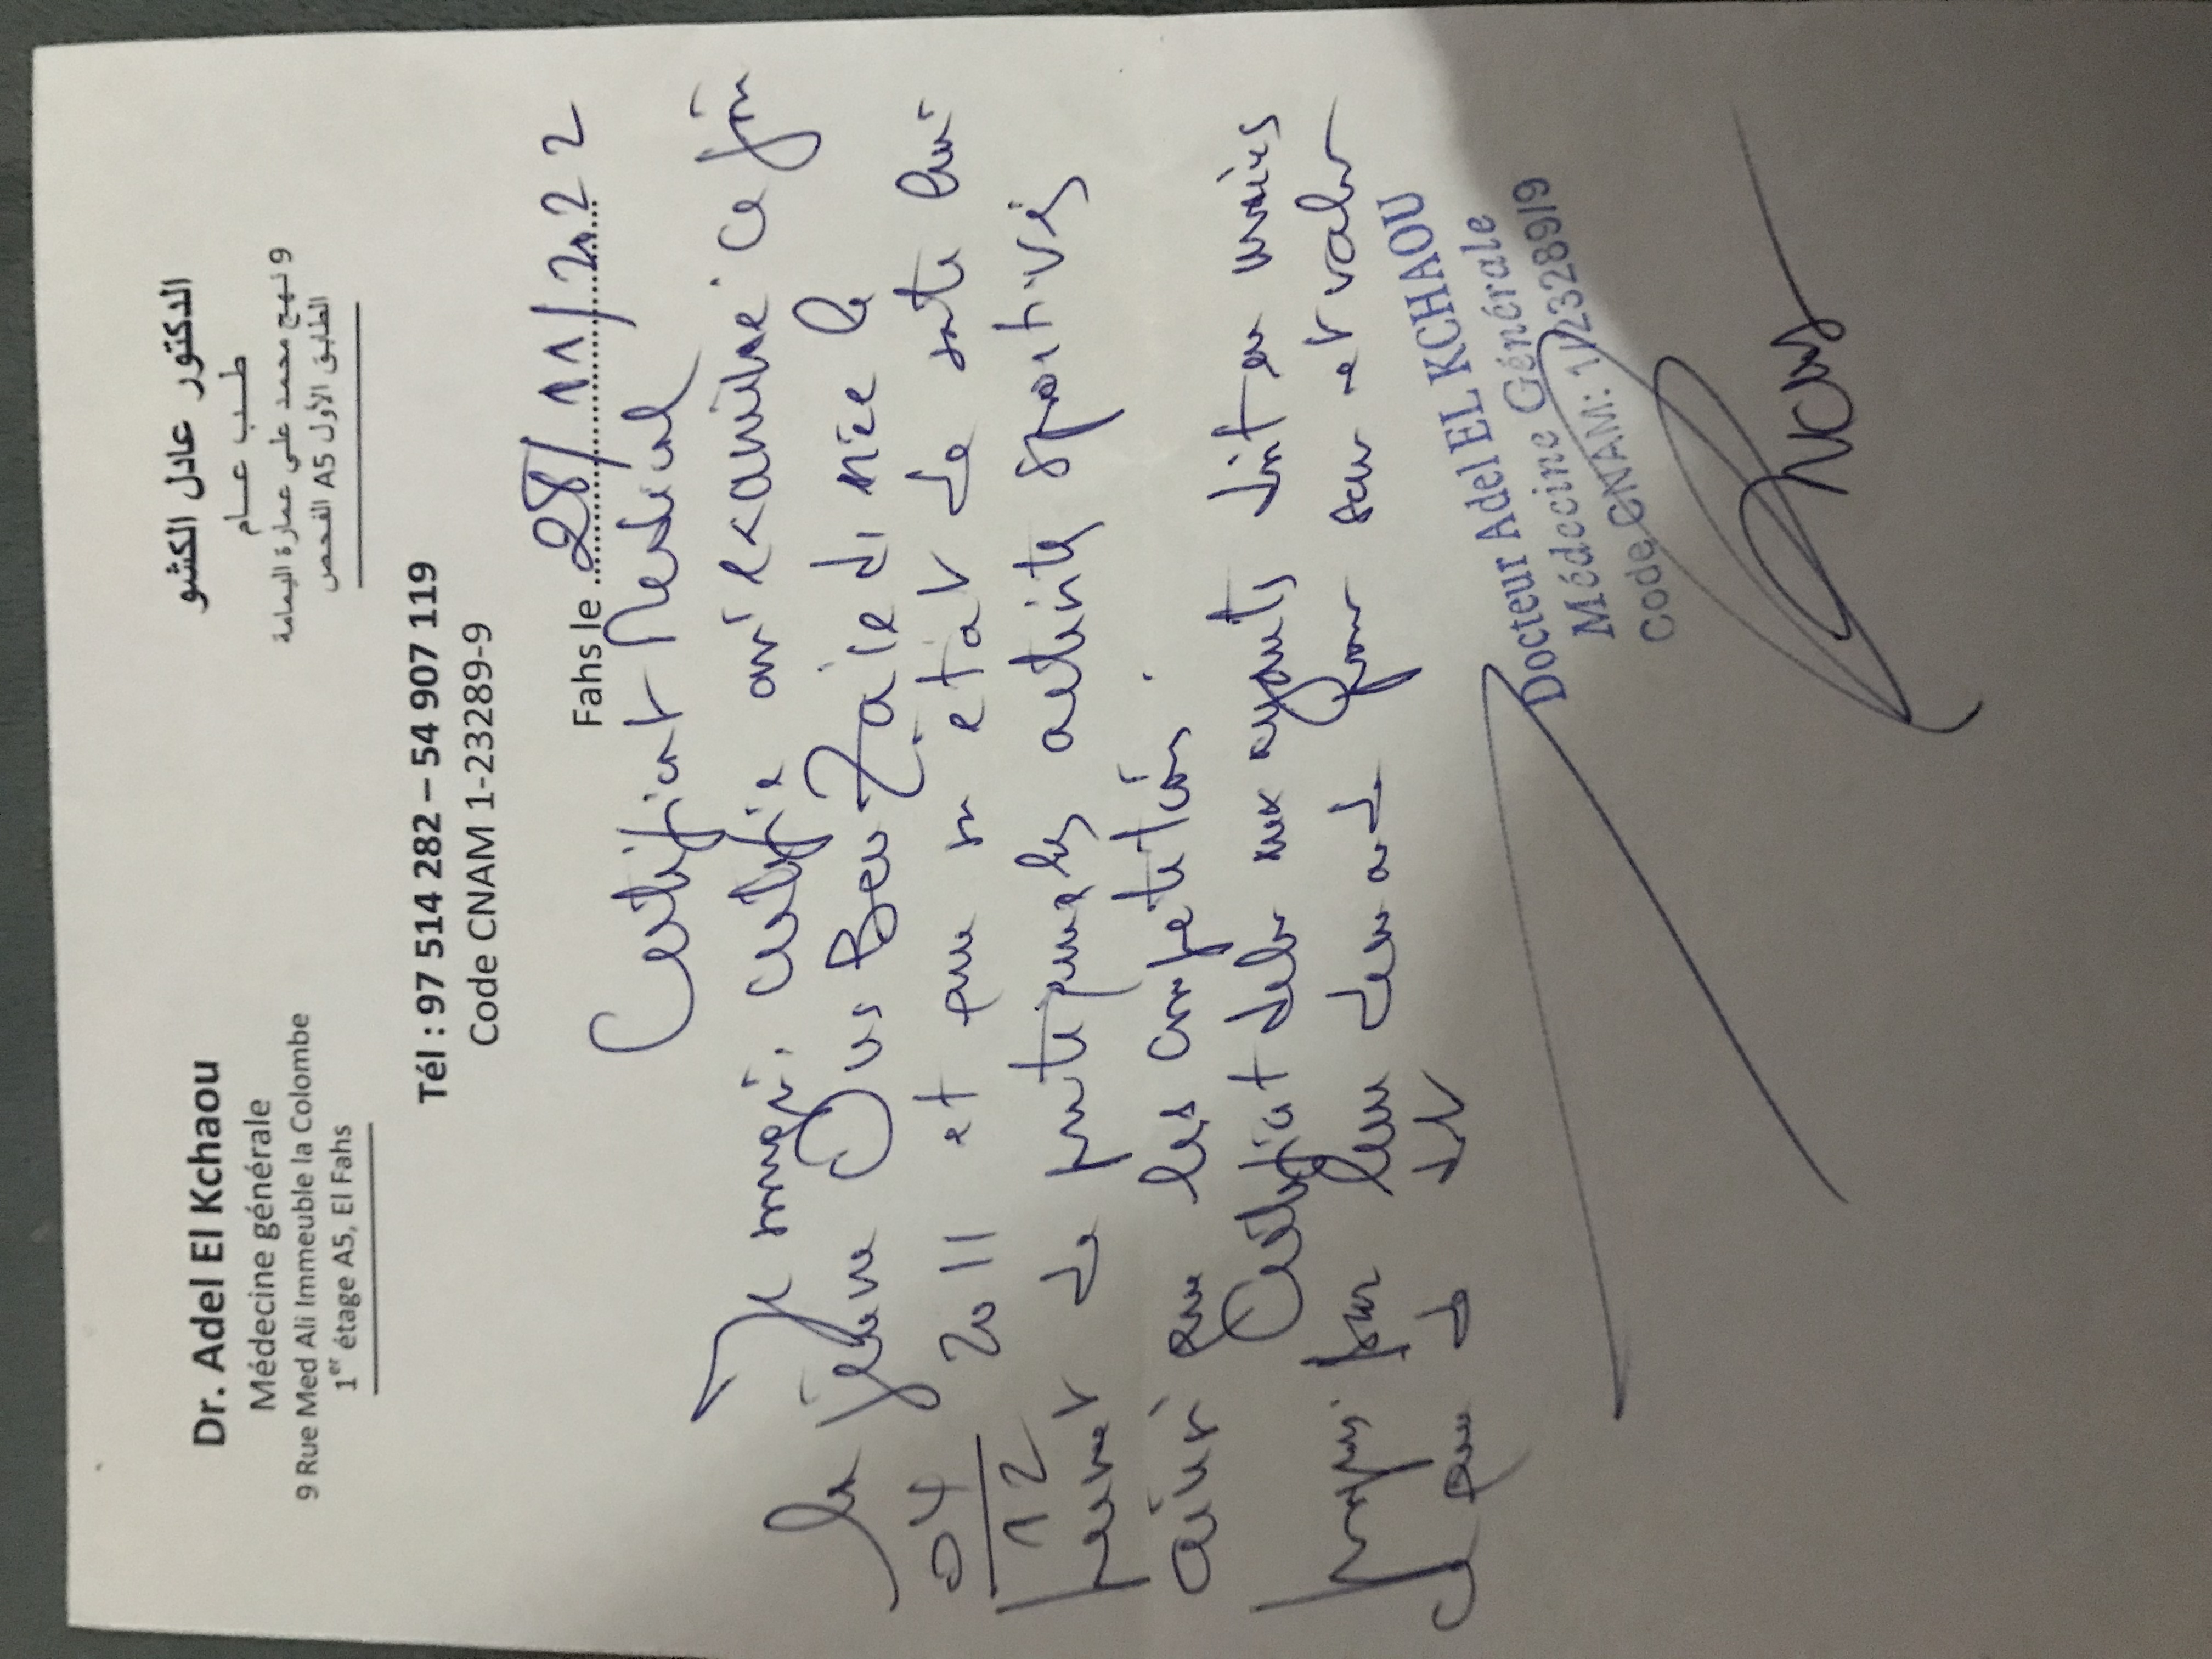 Dr. Adel El Kchaou
Médecine générale
9 Rue Med Ali Immeuble la Colombe
1er étage A5, El Fahs
الدكتور عادل الكشو
طـب عـام
9 نهج محمد علي عمارة اليمامة
الطابق الأول A5 الفحص
Tél : 97 514 282 – 54 907 119
Code CNAM 1-23289-9
Fahs le 28/11/2022
Certificat Medical
Je certifie avoir examiné ce jour
la jeune Ons Ben née le
04/12 2011 et que son etat de sante lui
permet de pratiquer les activités sportives
ainsi que les competition.
Certificat delivré aux ayants
par leur demande pour servir et valoir
ce que de droit
Docteur Adel EL KCHAOU
Médecine Générale
Code CNAM: 1/23289/9